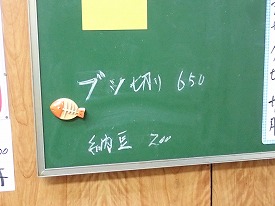 ブツ切り 650
納豆 200